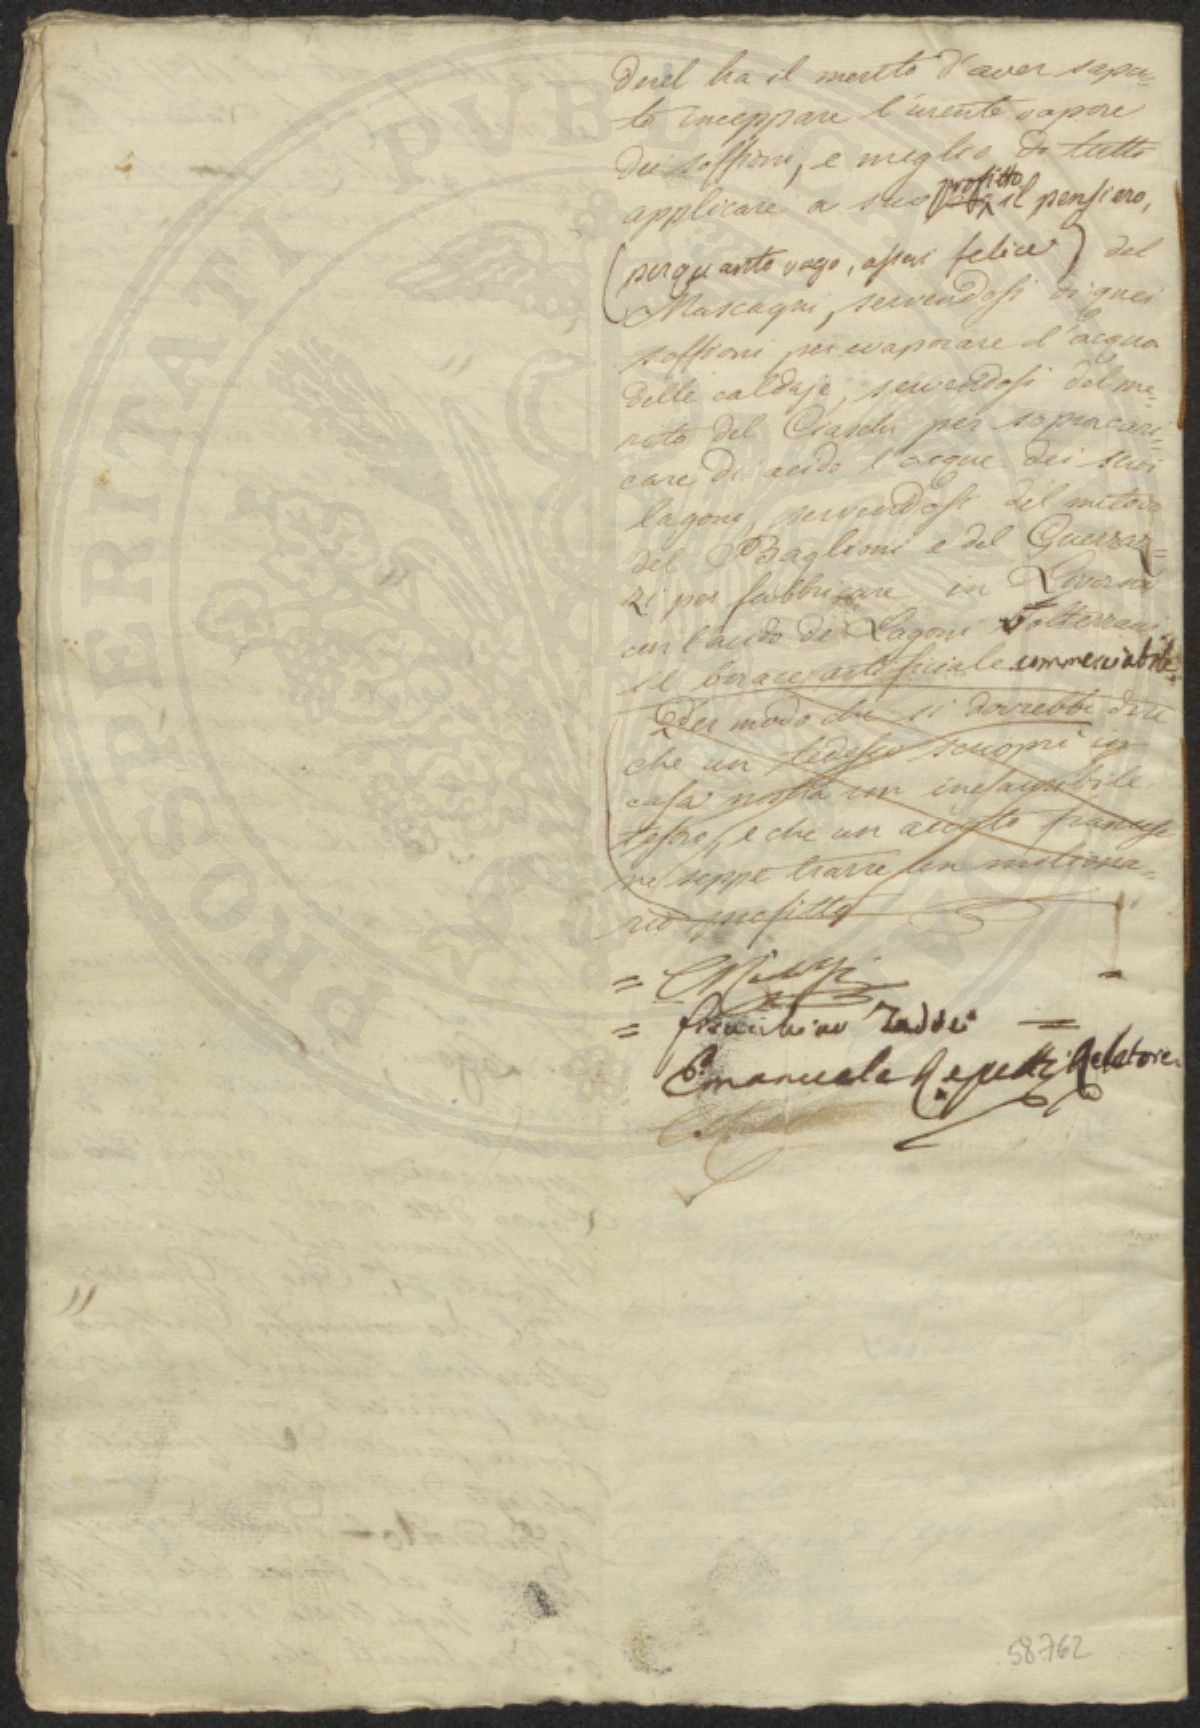 derel ha il merito d'aver sapu-
to inceppare l'urente vapore
dei soffioni, e meglio di tutto
profitto
applicare a suo il pensiero,
(perquanto vago, assai felice) del
Mascagni, servendosi di quei
soffioni per evaporare l'acqua
delle caldaje, servendosi del me-
rito del Ciaschi per sopracari-
care di acido l'acque dei suoi
lagoni, servendosi del metodo
del Baglioni e del Guerraz=
zi per fabbricare in Livorno
con l'acido dei Lagoni Volterrani
il borace artificiale commerciabile.
Per modo che si dovrebbe dire
che un tedesco scuoprì in
casa nostra un inesauribile
tesoro, e che un accorto francese
ne seppe trarre un miliona=
rio profitto
=
= Taddei =
Emanuele Repetti Relatore
PROSPERITATI PUBLICAE
58762